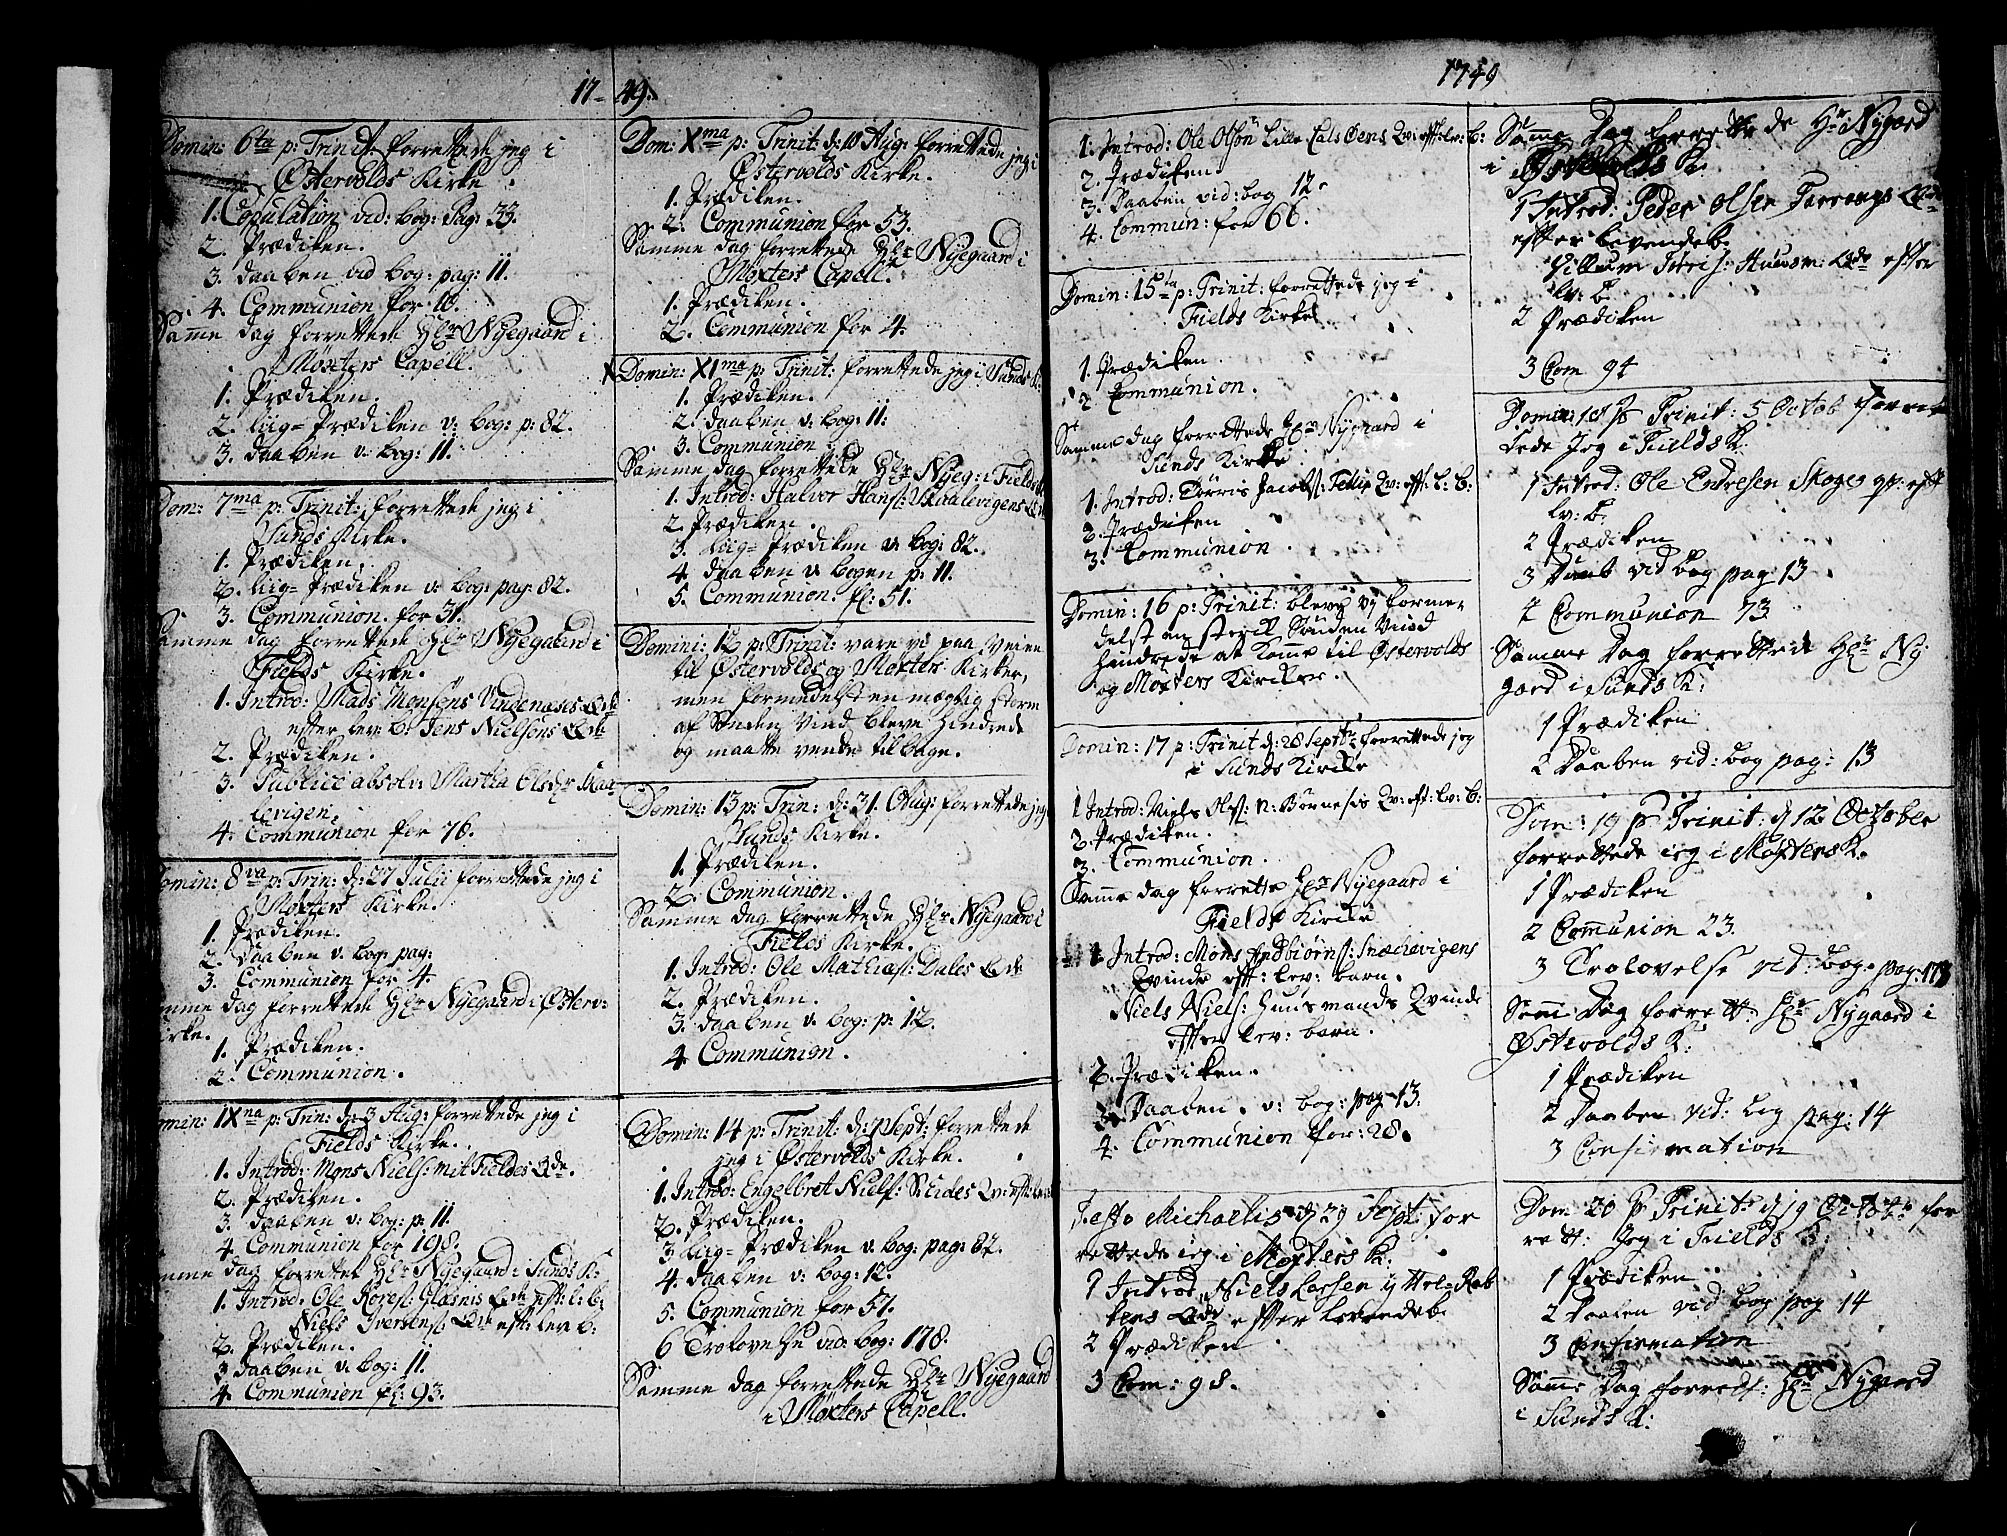 17-49.
Domin: 6ta p: Trinit. forrettede jeg i
Østervolds Kirke.
1. Copulation vid: bog: Pag: 33.
2. Prædiken.
3. daaben vid bog: pag: 11.
4. Communion for 10.
Samme dag forrettede Hr Nyegaard i
Møxters Capell.
1. Prædiken.
2. liig-Prædiken v: bog: p: 82.
3. daaben v: bog: 11.
Dom: 7ma p: Trinit: forrettede jeg i
Sunds Kirke.
1. Prædiken.
2. liig-Prædiken v: bog: pag: 82.
3. Communion. for 31.
Samme dag forrettede Hr Nyegaard i
Fields Kirke.
1. Introd: Mads Monsens Vindenæses
efter lev: b: Jens Nielsøns
2. Prædiken.
3. Publice absolv: Martha Olsdr Skaa-
levigen.
4. Communion for 76.
Domin: 8va p: Trin: d: 27 Julii forrettede jeg i
Møxters Kirke.
1. Prædiken.
2. Daaben v: bog: pag:
3. Communion for 4.
Samme dag forrettede Hr Nyegaard i Østerv:
Kirke.
1. Prædiken.
2. Communion.
Domin: IXna p: Trin: d: 3 Aug: forrettede jeg i
Fields Kirke.
1. Introd: Mons Niels: Mit Fieldes
2. Prædiken.
3. daaben v: bog: p: 11.
4. Communion for 198.
Samme dag forrettet Hr Nyegaard i Sunds K:
1. Introd. Ole eft: l: b:
Niels Iversens: eft: lev b:
2. Prædiken.
3. daaben v: bog: 11.
4. Communion f: 93.
Dom: Xma p: Trinit: d: 10 Aug: forrettede jeg i
Østervolds Kirke.
1. Prædiken.
2. Communion for 53.
Samme dag forrettede Hr Nyegaard i
Møxters Capell.
1. Prædiken.
2. Communion for 4.
X Domin: XIma p: Trinit: forrettede jeg i Sunds K:
1. Prædiken.
2. daaben v: bog: 11.
3. Communion.
Samme dag forrettede Hr Nyeg: i Fields K:
1. Introd: Halvor Hans: Skaalevigens
2. Prædiken.
3. liig-Prædiken v: bog: 82.
4. daaben v: bogen p: 11.
5. Communion. f: 51.
Domini: 12 p: Trinit: vare vi paa Veien
til Østervolds og Møxters Kirker,
men formedelst en mægtig storm
af Sønden Vind bleve hindrede
og maatte vende tilbage.
Domin: 13 p: Trin: d: 31. Aug: forrettede jeg i
Sunds Kirke.
1. Prædiken.
2. Communion.
Samme dag forrettede Hr Nyegaard i
Fields Kirke.
1. Introd: Ole Mathias: Dales
2. Prædiken.
3. daaben v: bog: p: 12.
4. Communion.
Domin: 14 p: Trinit: d: 7 Sept: forrettede
jeg i Østervolds Kirke.
1. Introd: Engelbret Niels: Qv: eft:
2. Prædiken.
3. liig-Prædiken v: bog: pag: 82.
4. daaben v: bog: 12.
5. Communion for 57.
6 Trolovelse vid: bog: 178.
Samme dag forrettede Hr Nyegaard
i Møxters Capell.
1749
1. Introd: Ole Olsøn Lille Qv: eft: lev: b:
2. Prædiken.
3. Daaben vid: bog 12.
4. Commun: for 66.
Domin: 15ta p: Trinit: forrettede jeg i
Fields Kirke
1. Prædiken
2 Communion.
Samme dag forrettede Hr Nygaard i
Sunds Kirke
1. Introd: Tørris Jacobs: Qv: eft: l: b:
2. Prædiken
3. Communion.
Domin: 16 p: Trinit: bleve vj forme-
delst en sterck Sønden Viud
hindrede at komme til Østervolds
og Møxters Kircker.
Domin: 17 p: Trinit d: 28 Septbr forrettede jeg
i Sunds Kircke
1 Introd: Niels Ols: n: Børnesis Qv: eft: lv: b:
2. Prædiken.
3. Communion.
Samme dag forrette Hr Nyegaard i
Fields Kircke
1. Introd: Mons Andbiørns: Snechevigens
Qvinde eft: lev: barn.
Niels Niels: Huusmands Qvinde
efter lev: barn.
2. Prædiken.
3. Daaben. v: bog: pag 13.
4. Communion for: 28.
Festo Michaelis d 29 Sept: for
rettede ieg i Møxters K:
1 Introd Niels Larsen
efter levendeb:
2 Prædiken
3 Com: 98.
Samme Dag forrettede Hr Nygaard
i Østevolds K.
1 Introd: Peder Olsen
efter levendeb.
Villum Huusm: efter
lv: b.
2 Prædiken
3 Com 94
Domin: 18 p Trinit: 5 Octob forret
tede Jeg i Fields K.
1 Introd: Ole Endresen Skoges eft
lv: b:
2 Prædiken
3 Daab vid bog pag: 13.
4 Communion 73
Samme Dag forrettede Hr Ny-
gard i Sunds K:
1 Prædiken
2 Daaben vid: bog pag: 13
Dom: 19 p Trinit: d 12 October
forrettede ieg i Møxters K.
1 Prædiken
2 Communion 23.
3 Trolovelse vid: bog. pag: 178
Samme Dag forrett: Hr Nygaard i
Østevolds K:
1 Prædiken
2 Daaben vid: bog pag: 14
3 Confirmation
Dom 20 p Trinit: d 19 Octobr for
rett: Jeg i Fields K:
1 Prædiken
2 Daaben vid bog pag 14
3 Confirmation
Samme Dag forrett: Hr Nygaard
i Sunds K: